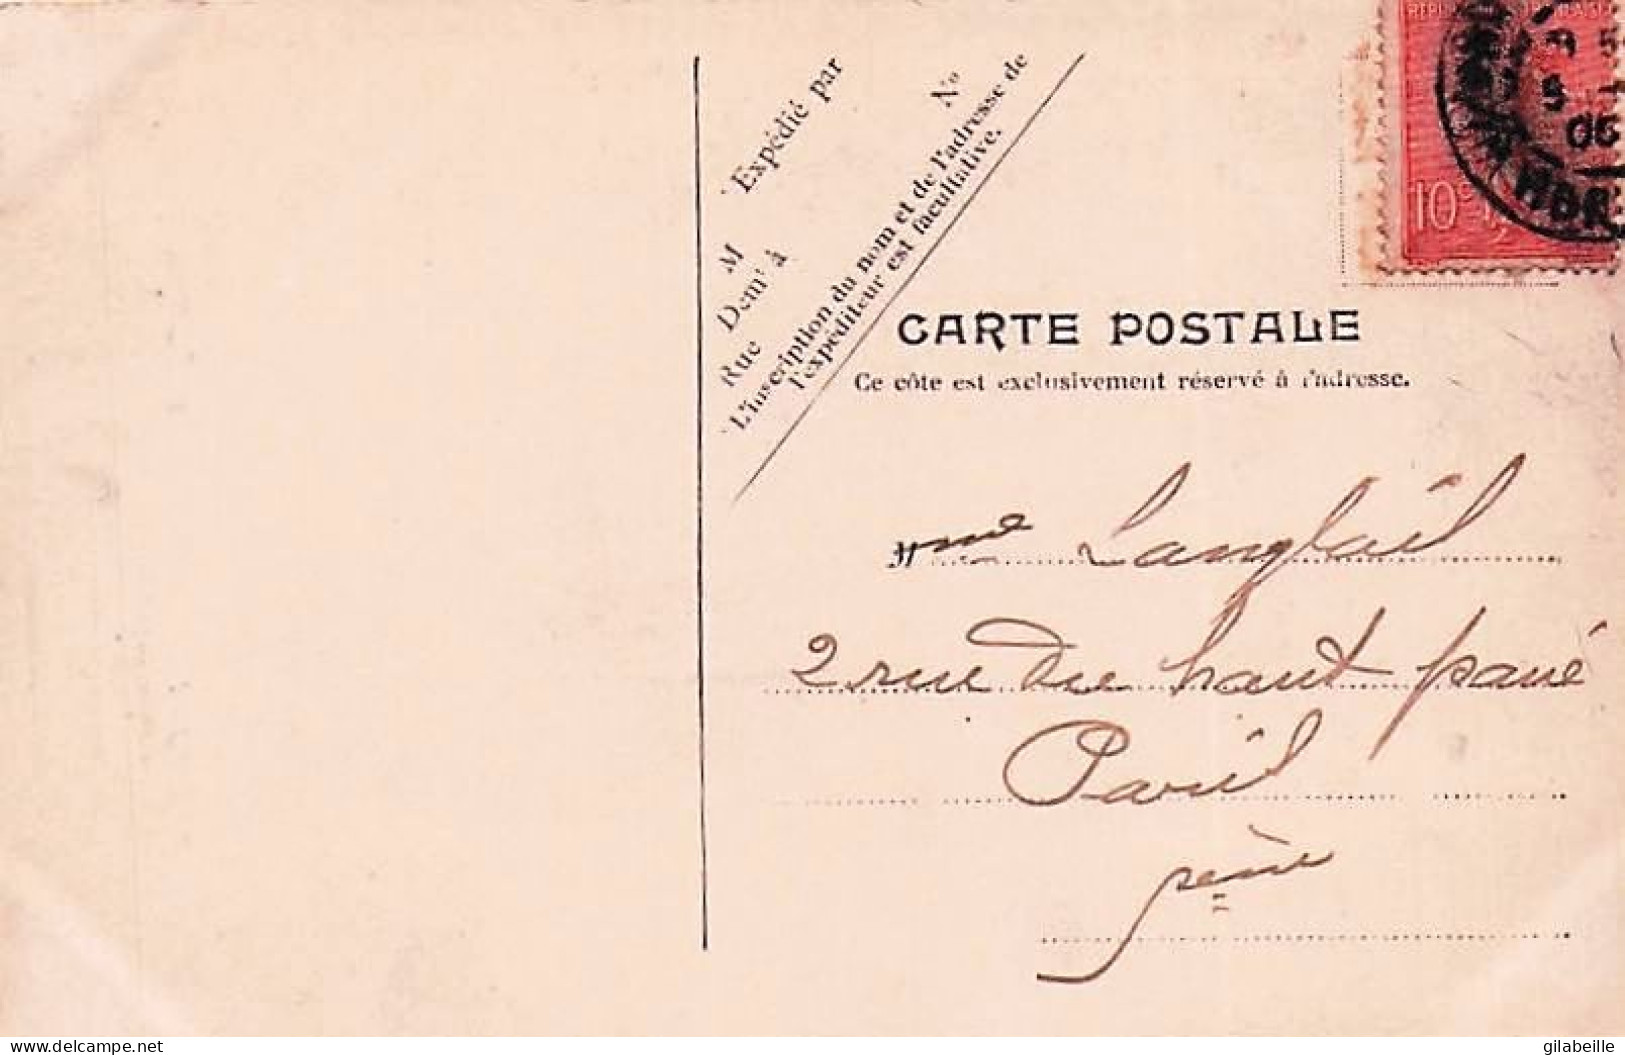 Expédié par
M N°
Dem<sup>t</sup> à
Rue
L'inscription du nom et de l'adresse de
l'expéditeur est facultative.
10c
06
CARTE POSTALE
Ce côte est exclusivement réservé à l'adresse.
Mme
2 rue du haut pavé
Paris
delcampe.net
gilabeille